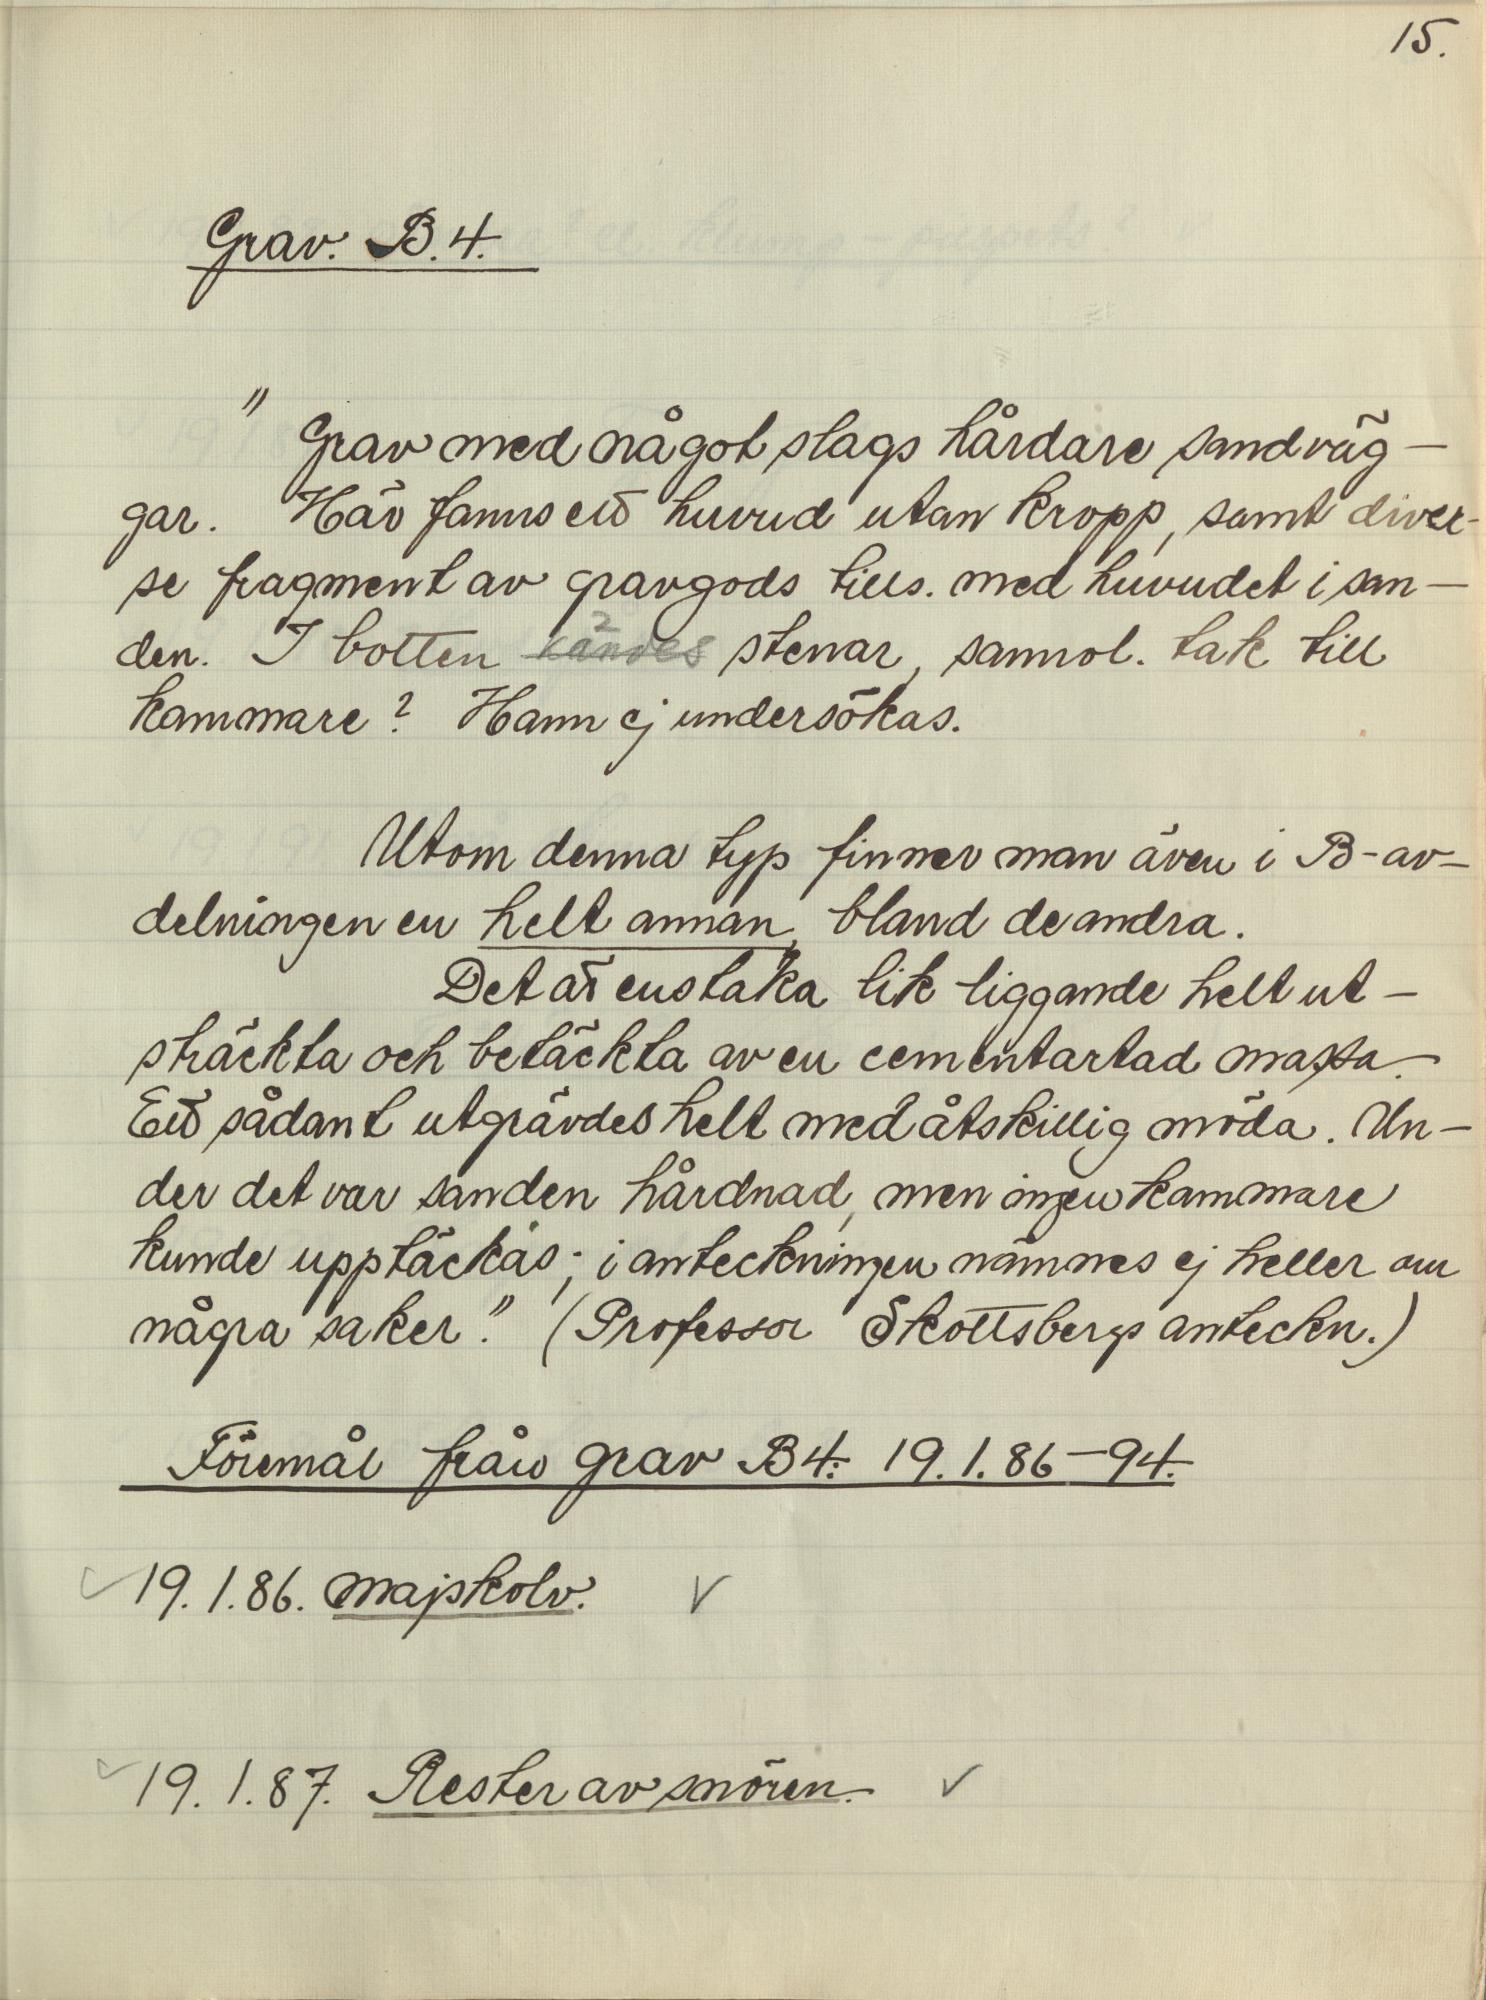 15.
Grav. B.4.
" Grav med något slags hårdare sandväg-
gar. Här fanns ett huvud utan kropp, samt diver-
se fragment av gravgods tills. med huvudet i san-
den. I botten kändes stenar, sannol. tak till
kammare? Hann ej undersökas.
Utom denna typ finner man även i B-av-
delningen en helt annan, bland de andra.
Det är enstaka lik liggande helt ut-
sträckta och betäckta av en cementartad massa.
Ett sådant utgrävdes helt med åtskillig möda. Un-
der det var sanden hårdnad, men ingen kammare
kunde upptäckas; i anteckningen nämnes ej heller om
några saker." (Professor Skottsbergs anteckn.)
Föremål från grav B4: 19.1.86-94.
✓ 19.1.86. majskolv. ✓
✓ 19.1.87. Rester av snören. ✓